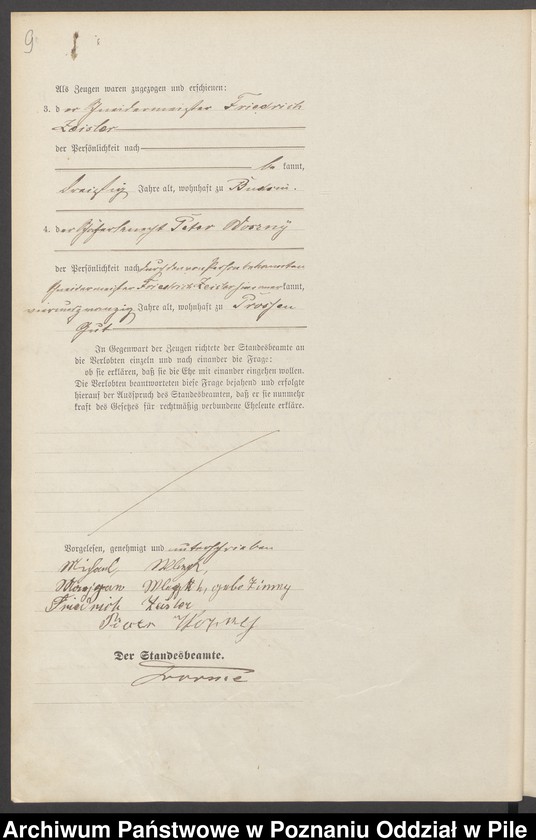 9
Als Zeugen waren zugezogen und erschienen:
3. der Schneidermeister Friedrich
Zeisler
der Persönlichkeit nach
be kannt,
dreißig Jahre alt, wohnhaft zu
4. der Peter
der Persönlichkeit nach durch den von Person bekannten
Schneidermeister Friedrich Zeisler kannt,
vierundzwanzig Jahre alt, wohnhaft zu
Gut
In Gegenwart der Zeugen richtete der Standesbeamte an
die Verlobten einzeln und nach einander die Frage:
ob sie erklären, daß sie die Ehe mit einander eingehen wollen.
Die Verlobten beantworteten diese Frage bejahend und erfolgte
hierauf der Ausspruch des Standesbeamten, daß er sie nunmehr
kraft des Gesetzes für rechtmäßig verbundene Eheleute erkläre.
Vorgelesen, genehmigt und unterschrieben
Michael
Friedrich Zeisler
Der Standesbeamte.
Archiwum Państwowe w Poznaniu Oddział w Pile